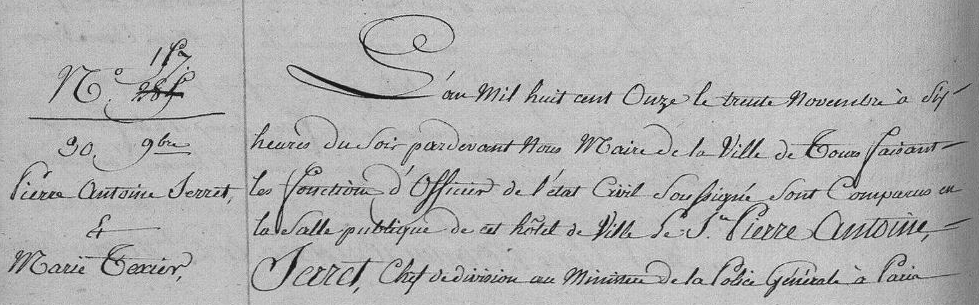 N.° 117.
30, 9bre
Pierre Antoine Serret,
&
Marie Texier,
L'an Mil huit cent Onze le trente Novembre à Six
heures du Soir pardevant Nous Maire de la Ville de Tours faisant
les fonction d'Officier de l'état Civil Soussigné sont Comparus en
la Salle publique de cet hôtel de Ville Le S.r Pierre Antoine,
Serret, Chef de division au Ministere de la Police Générale à Paris